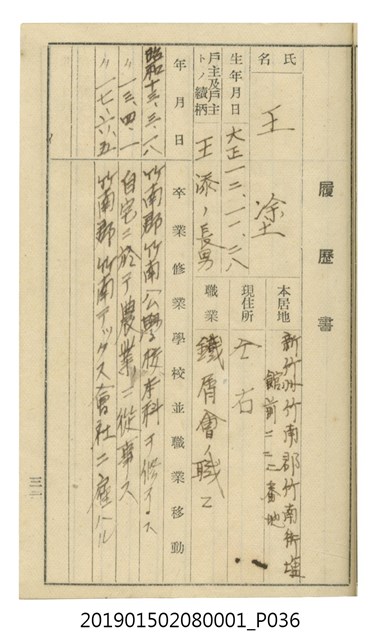 履歷書
本居地
新竹州竹南郡竹南街塩
館前二二二番地
現住所
仝右
職業
鐵屑會ノ職工
氏名
王塗
生年月日
大正一二、一一、二八
戶主及戶主トノ續柄
王添ノ長男
年月日
卒業修業學校並職業移動
昭和十三、三、一八
竹南郡竹南公學校本科ヲ修了ス
〃一三、四、一
自宅ニ於テ農業ニ從事ス
〃一七、六、五
竹南郡竹南テックス會社ニ雇ハル
三二
201901502080001_P036